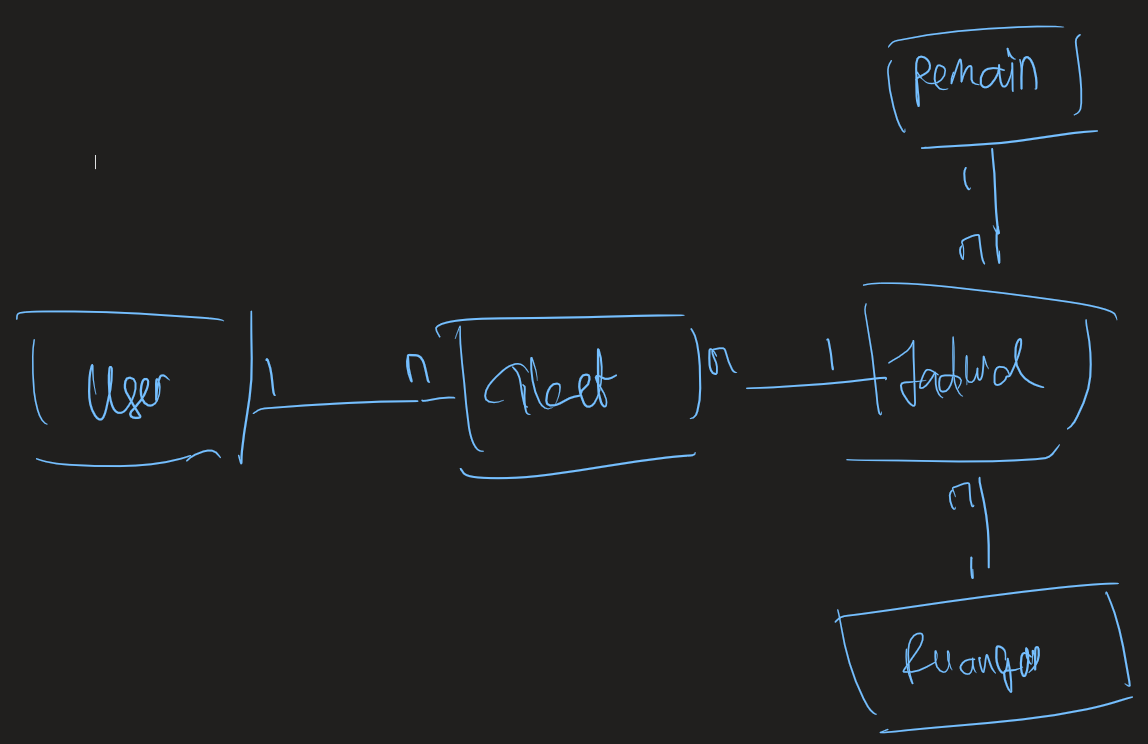 Pemain
1
n
User 1 n n 1 Jadwal
n
1
Ruangan